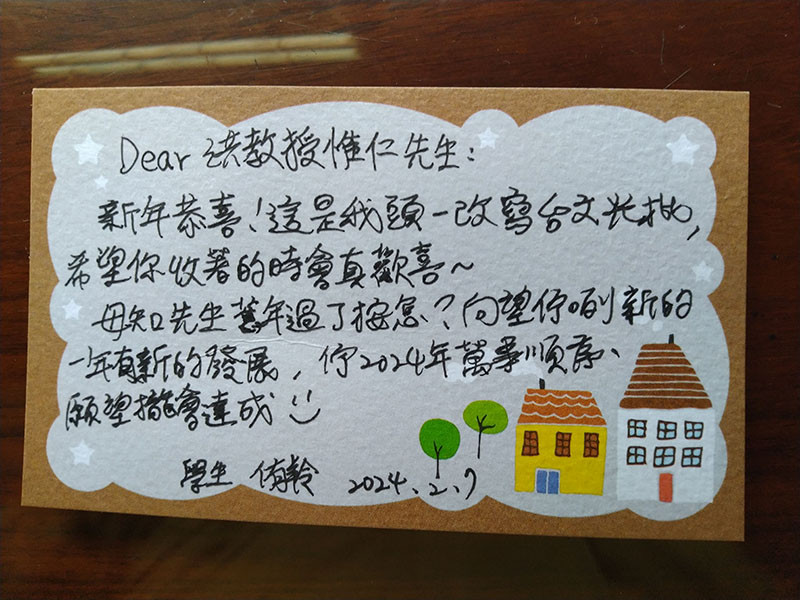 Dear 洪教授惟仁先生:
新年恭喜!這是我頭一改寫台文批,
希望你收著的時會真歡喜~
毋知先生舊年過了按怎?向望你咧新的
一年有新的發展,你2024年萬事順序、
願望攏會達成
學生 侑齡 2024.2.7